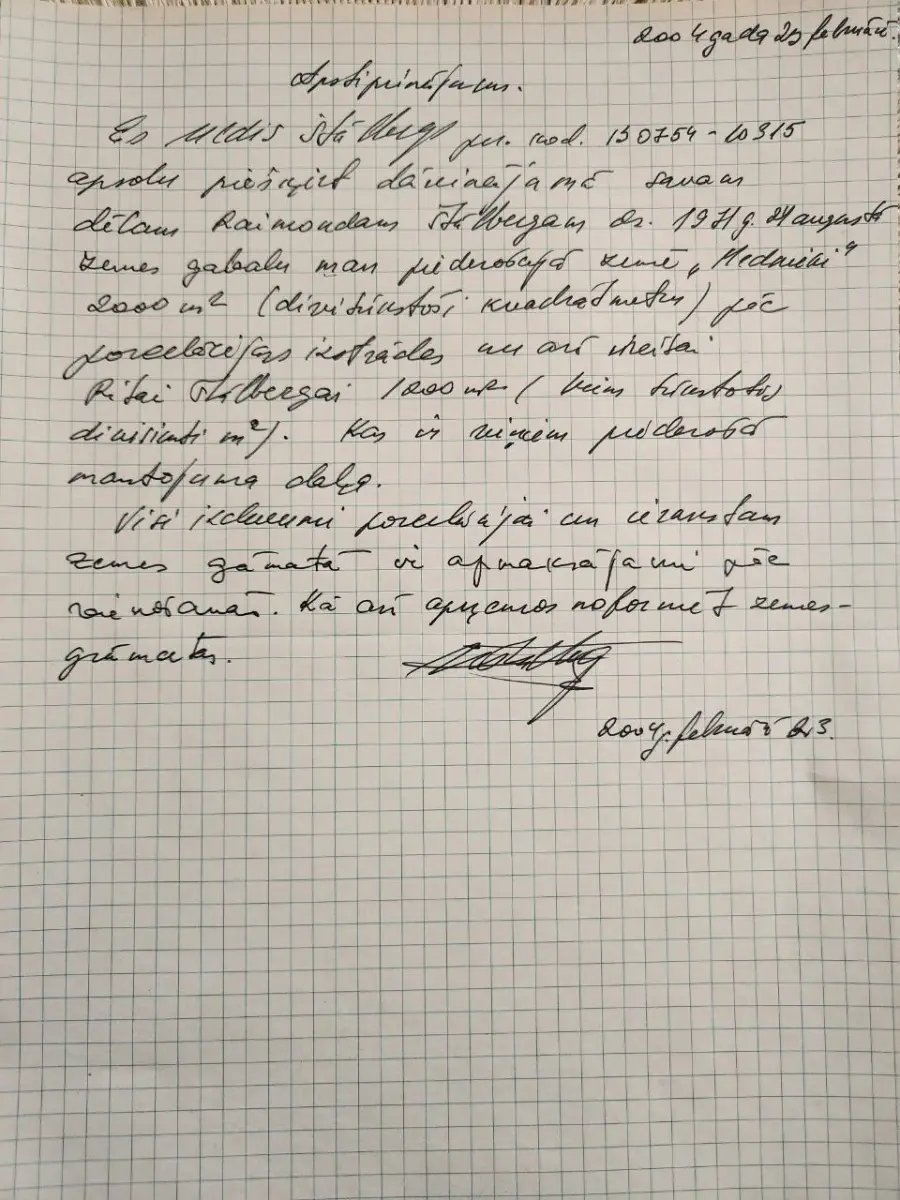 2004 gada 23 februārī.
Apstiprinājums.
Es Uldis Štālbergs per. kod. 130754-10315
apsolu piešķirt dāvinājumā savam
dēlam Raimondam Štālbergam dz. 1971 g. 24 augustā
zemes gabalu man piederošajā zemē „Mednieki"
2000 m² (divi tūkstoši kvadrātmetru) pēc
parcelācijas izstrādes un arī meitai
Ritai Štālbergai 1200 m² (viens tūkstotis
divisimti m²). Kas ir viņiem piederošā
mantojuma daļa.
Visi izdevumi parcelācijai un ierakstam
zemes gāmatā ir apmaksājami pēc
vienošanās. Kā arī apņemos noformēt zemes-
grāmatas.
2004 g. februārī 23.